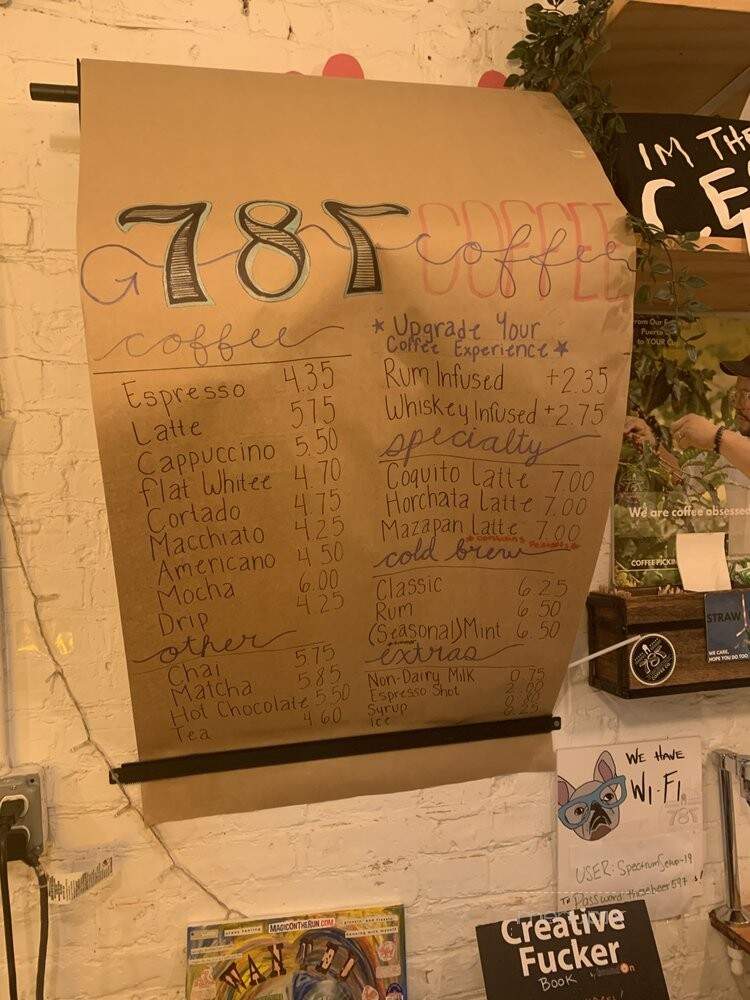 787 COFFEE
coffee
coffee
Espresso 4.35
Latte 575
Cappuccino 5.50
flat Whitee 4.70
Cortado 4.75
Macchiato 4.25
Americano 4.50
Mocha 6.00
Drip 4.25
other
Chai 575
Matcha 585
Hot Chocolate 5.50
Tea 4.60
* Upgrade Your
Coffee Experience *
Rum Infused +2.35
Whiskey Infused +2.75
specialty
Coquito Latte 7.00
Horchata Latte 7.00
Mazapan Latte 7.00
*contains peanuts*
cold brew
Classic 6.25
Rum 6.50
(Seasonal) Mint 6.50
extras
Non-Dairy Milk 0.75
Espresso Shot 2.00
Syrup
ice
IM THE
We are coffee obsessed
COFFEE PICKIN
STRAW
WE CARE,
HOPE YOU DO TOO
787
COFFEE CO.
WE HAVE
WI-FI
787
USER: SpectrumSetup-19
Password:
MAGICONTHERUN.COM
WANTED
Creative
Fucker
BOOK